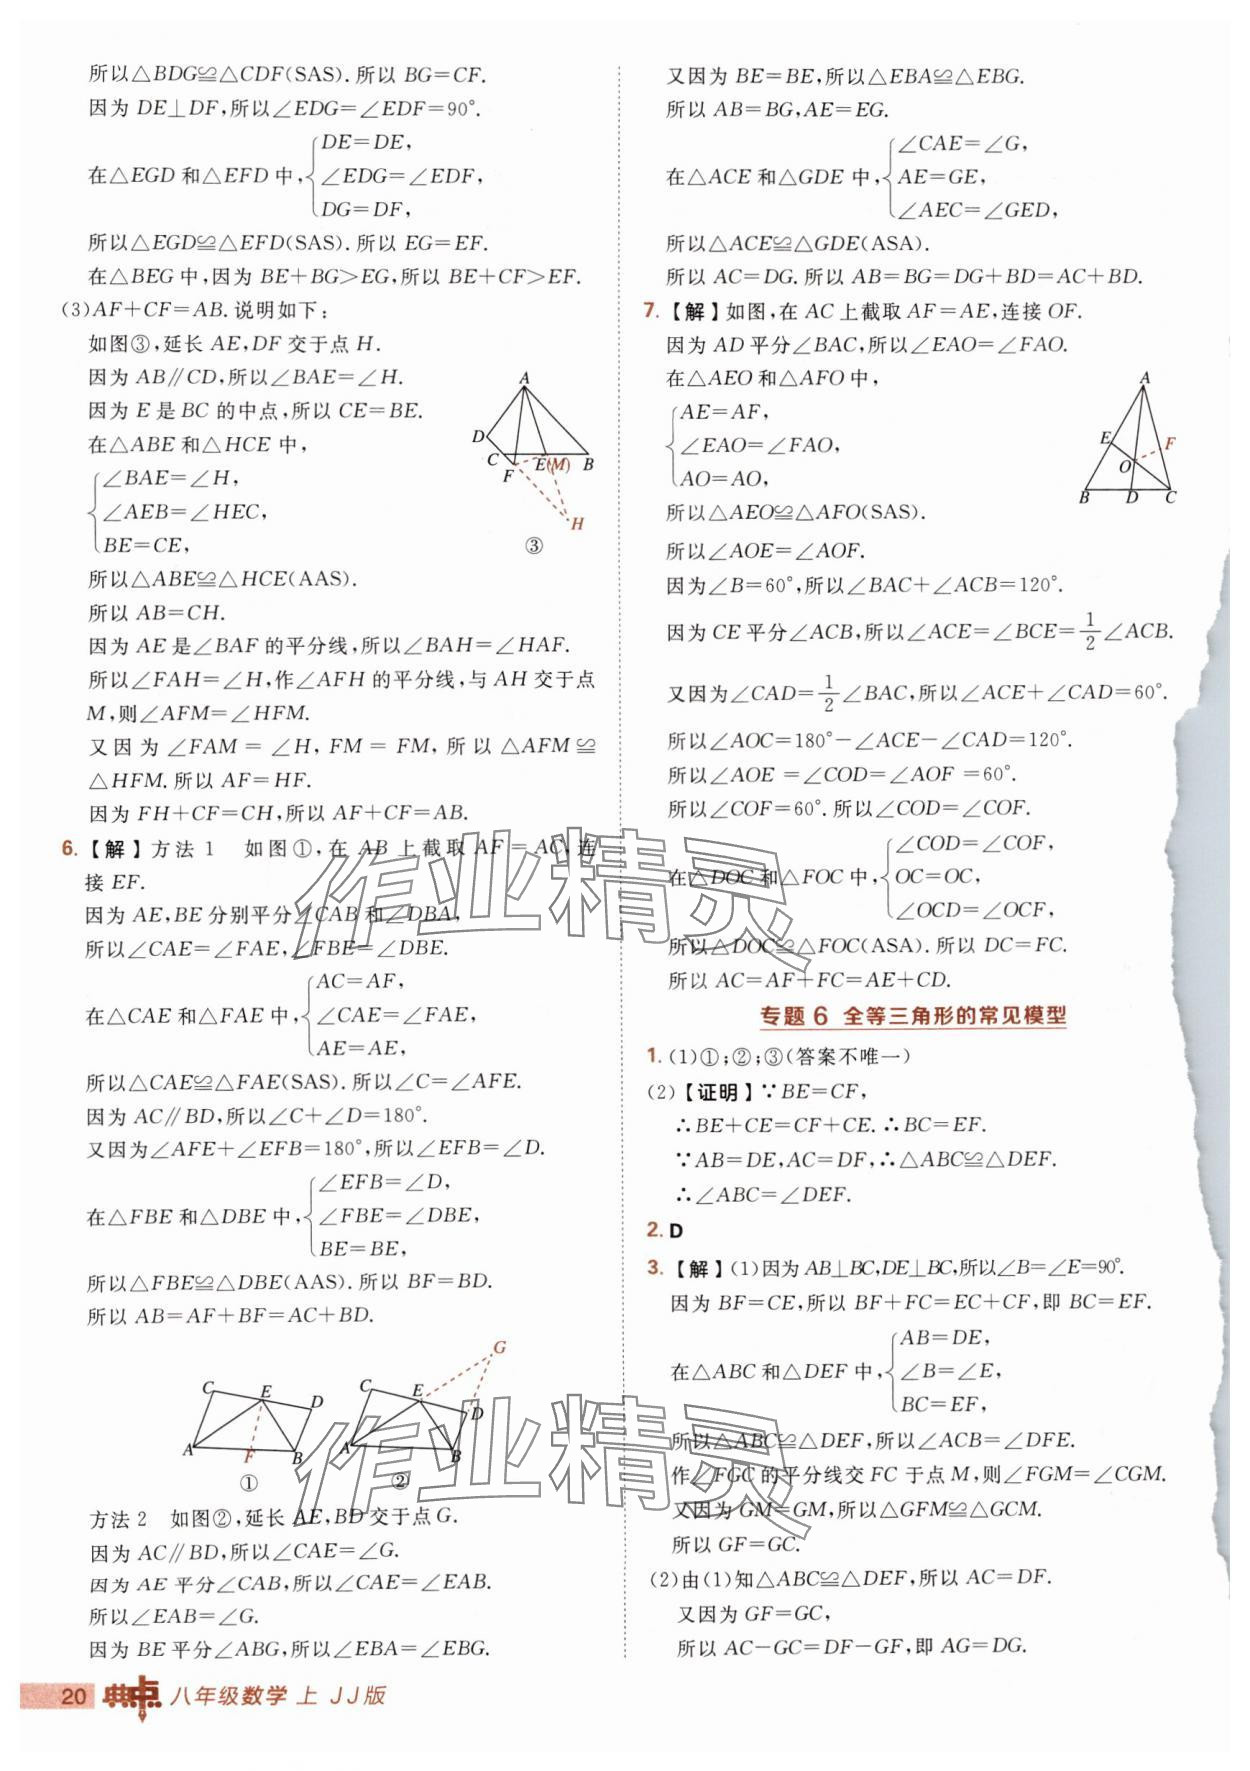 所以△BDG≌△CDF(SAS).所以 BG=CF.
因为 DE⊥DF,所以∠EDG=∠EDF=90°.
在△EGD 和△EFD 中,
DE=DE,
∠EDG=∠EDF,
DG=DF,
所以△EGD≌△EFD(SAS).所以 EG=EF.
在△BEG 中,因为 BE+BG>EG,所以 BE+CF>EF.
(3)AF+CF=AB.说明如下:
如图③,延长 AE,DF 交于点 H.
因为 AB∥CD,所以∠BAE=∠H.
因为 E 是 BC 的中点,所以 CE=BE.
在△ABE 和△HCE 中,
∠BAE=∠H,
∠AEB=∠HEC,
BE=CE,
A
D
C
F
E(M)
B
H
③
所以△ABE≌△HCE(AAS).
所以 AB=CH.
因为 AE 是∠BAF 的平分线,所以∠BAH=∠HAF.
所以∠FAH=∠H,作∠AFH 的平分线,与 AH 交于点
M,则∠AFM=∠HFM.
又因为∠FAM=∠H,FM=FM,所以△AFM≌
△HFM.所以 AF=HF.
因为 FH+CF=CH,所以 AF+CF=AB.
6.【解】方法 1 如图①,在 AB 上截取 AF=AC,连
接 EF.
因为 AE,BE 分别平分∠CAB 和∠DBA,
所以∠CAE=∠FAE,∠FBE=∠DBE.
在△CAE 和△FAE 中,
AC=AF,
∠CAE=∠FAE,
AE=AE,
所以△CAE≌△FAE(SAS).所以∠C=∠AFE.
因为 AC∥BD,所以∠C+∠D=180°.
又因为∠AFE+∠EFB=180°,所以∠EFB=∠D.
在△FBE 和△DBE 中,
∠EFB=∠D,
∠FBE=∠DBE,
BE=BE,
所以△FBE≌△DBE(AAS).所以 BF=BD.
所以 AB=AF+BF=AC+BD.
C
E
D
A
F
B
①
G
C
E
D
A
B
②
方法 2 如图②,延长 AE,BD 交于点 G.
因为 AC∥BD,所以∠CAE=∠G.
因为 AE 平分∠CAB,所以∠CAE=∠EAB.
所以∠EAB=∠G.
因为 BE 平分∠ABG,所以∠EBA=∠EBG.
又因为 BE=BE,所以△EBA≌△EBG.
所以 AB=BG,AE=EG.
在△ACE 和△GDE 中,
∠CAE=∠G,
AE=GE,
∠AEC=∠GED,
所以△ACE≌△GDE(ASA).
所以 AC=DG.所以 AB=BG=DG+BD=AC+BD.
7.【解】如图,在 AC 上截取 AF=AE,连接 OF.
因为 AD 平分∠BAC,所以∠EAO=∠FAO.
在△AEO 和△AFO 中,
AE=AF,
∠EAO=∠FAO,
AO=AO,
A
E
F
O
B
D
C
所以△AEO≌△AFO(SAS).
所以∠AOE=∠AOF.
因为∠B=60°,所以∠BAC+∠ACB=120°.
因为 CE 平分∠ACB,所以∠ACE=∠BCE=1/2∠ACB.
又因为∠CAD=1/2∠BAC,所以∠ACE+∠CAD=60°.
所以∠AOC=180°-∠ACE-∠CAD=120°.
所以∠AOE =∠COD=∠AOF =60°.
所以∠COF=60°.所以∠COD=∠COF.
在△DOC 和△FOC 中,
∠COD=∠COF,
OC=OC,
∠OCD=∠OCF,
所以△DOC≌△FOC(ASA).所以 DC=FC.
所以 AC=AF+FC=AE+CD.
专题 6 全等三角形的常见模型
1.(1)①;②;③(答案不唯一)
(2)【证明】∵BE=CF,
∴BE+CE=CF+CE.∴BC=EF.
∵AB=DE,AC=DF,∴△ABC≌△DEF.
∴∠ABC=∠DEF.
2. D
3.【解】(1)因为 AB⊥BC,DE⊥BC,所以∠B=∠E=90°.
因为 BF=CE,所以 BF+FC=EC+CF,即 BC=EF.
在△ABC 和△DEF 中,
AB=DE,
∠B=∠E,
BC=EF,
所以△ABC≌△DEF,所以∠ACB=∠DFE.
作∠FGC 的平分线交 FC 于点 M,则∠FGM=∠CGM.
又因为 GM=GM,所以△GFM≌△GCM.
所以 GF=GC.
(2)由(1)知△ABC≌△DEF,所以 AC=DF.
又因为 GF=GC,
所以 AC-GC=DF-GF,即 AG=DG.
20 典中点 八年级数学 上 JJ版
作业精灵
作业精灵